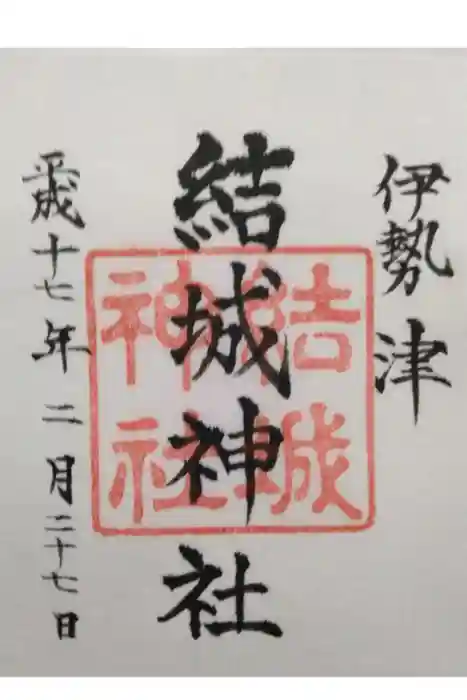 伊勢 津
結城神社
平成十七年 二月二十七日
結城
神社